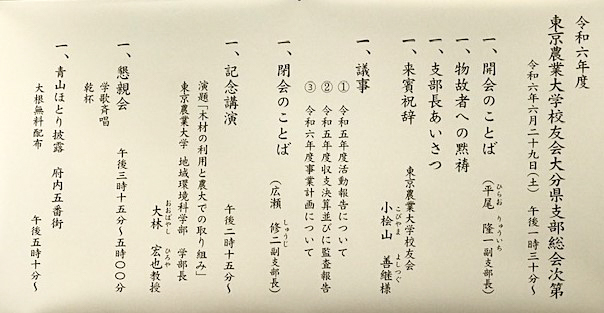 令和六年度
東京農業大学校友会大分県支部総会次第
令和六年六月二十九日(土) 午後一時三十分～
一、開会のことば (平尾 隆一副支部長)
ひらお りゅういち
一、物故者への黙祷
一、支部長あいさつ
一、来賓祝辞 東京農業大学校友会
小桧山 善継様
こびやま よしつぐ
一、議事
① 令和五年度活動報告について
② 令和五年度収支決算並びに監査報告
③ 令和六年度事業計画について
一、閉会のことば (広瀬 修二副支部長)
しゅうじ
一、記念講演 午後二時十五分～
演題「木材の利用と農大での取り組み」
東京農業大学 地域環境科学部 学部長
大林 宏也教授
おおばやし ひろや
一、懇親会 午後三時十五分～五時〇〇分
学歌斉唱
乾杯
一、青山ほとり披露 府内五番街
大根無料配布 午後五時十分～